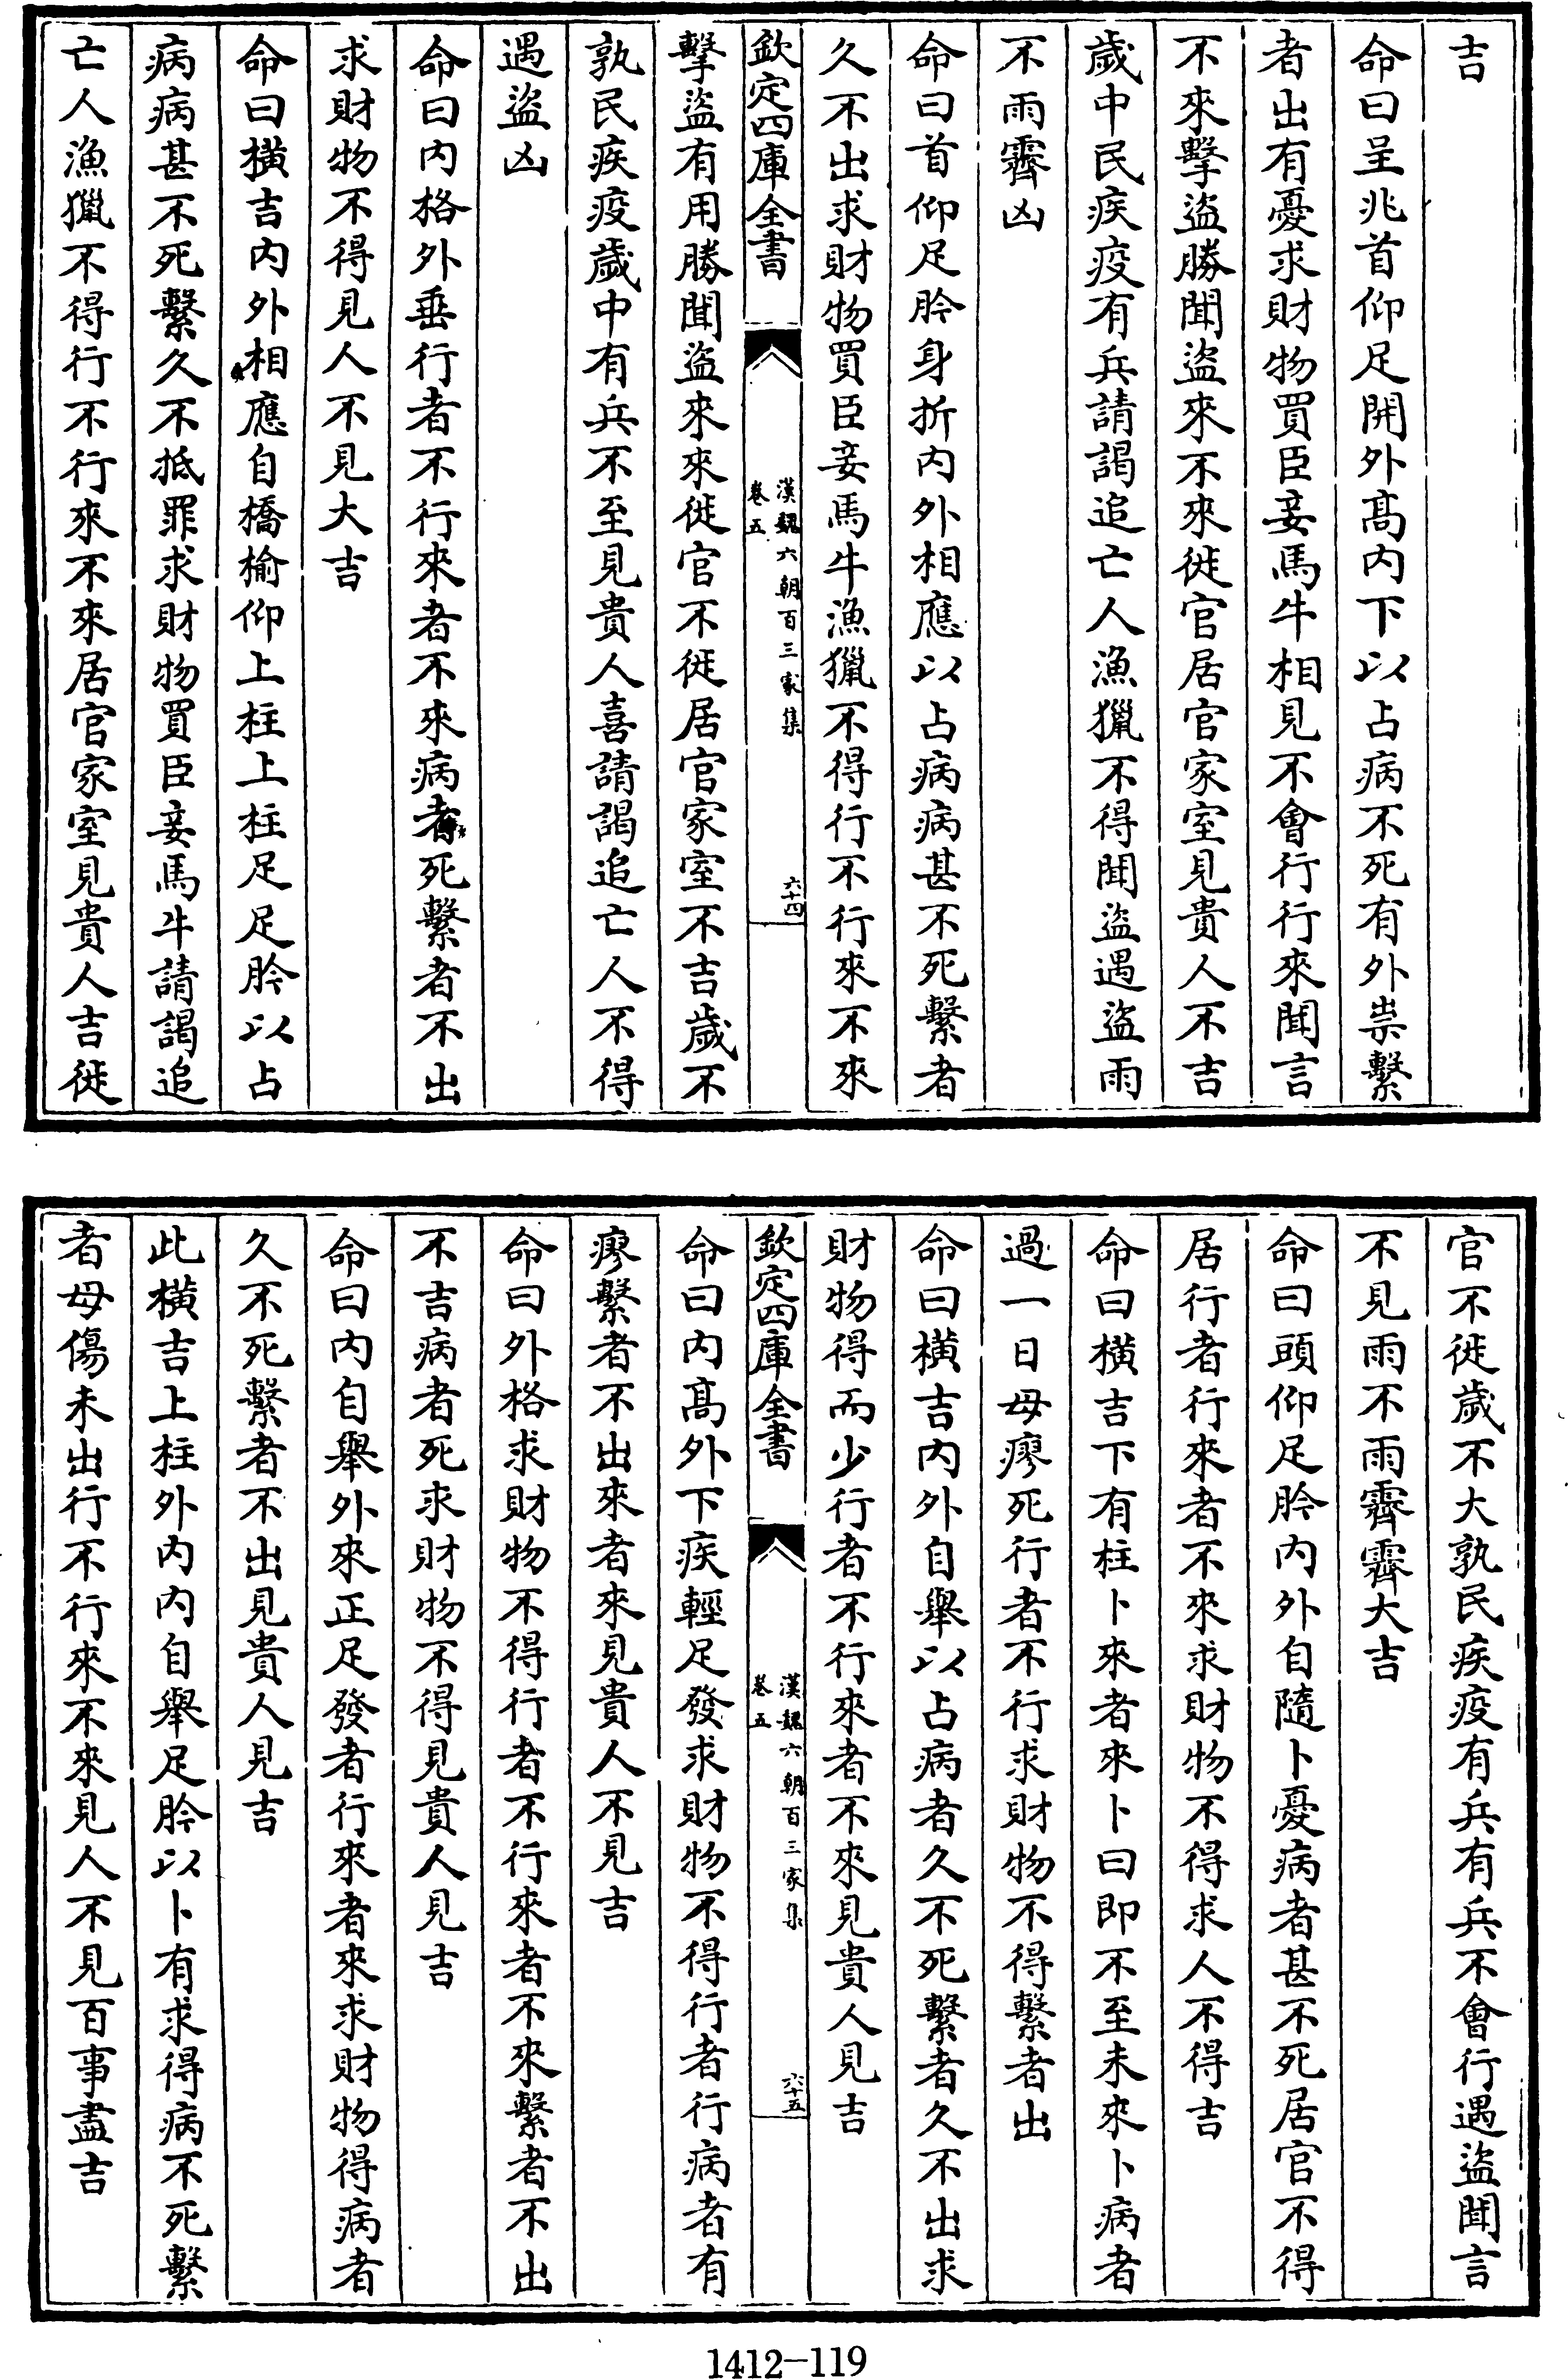 吉
命曰呈兆首仰足開外髙内下以占病不死有外祟繫
者出有憂求財物買臣妾馬牛相見不會行行來聞言
不來擊盜勝聞盜來不來徙官居官家室見貴人不吉
歲中民疾疫有兵請謁追亡人漁獵不得聞盜遇盜雨
不雨霽凶
命曰首仰足肣身折内外相應以占病病甚不死繫者
久不出求財物買臣妾馬牛漁獵不得行不行來不來
欽定四庫全書
漢魏六朝百三家集
卷五
六十四
擊盜有用勝聞盜來來徙官不徙居官家室不吉歲不
孰民疾疫歲中有兵不至見貴人喜請謁追亡人不得
遇盜凶
命曰内格外垂行者不行來者不來病者死繫者不出
求財物不得見人不見大吉
命曰橫吉内外相應自橋榆仰上柱上柱足足肣以占
病病甚不死繫久不抵罪求財物買臣妾馬牛請謁追
亡人漁獵不得行不行來不來居官家室見貴人吉徙
官不徙歲不大孰民疾疫有兵有兵不會行遇盜聞言
不見雨不雨霽霽大吉
命曰頭仰足肣内外自隨卜憂病者甚不死居官不得
居行者行來者不來求財物不得求人不得吉
命曰橫吉下有柱卜來者來卜曰即不至未來卜病者
過一日毋瘳死行者不行求財物不得繫者出
命曰橫吉内外自舉以占病者久不死繫者久不出求
財物得而少行者不行來者不來見貴人見吉
欽定四庫全書
漢魏六朝百三家集
卷五
六十五
命曰内髙外下疾輕足發求財物不得行者行病者有
瘳繫者不出來者來見貴人不見吉
命曰外格求財物不得行者不行來者不來繫者不出
不吉病者死求財物不得見貴人見吉
命曰内自舉外來正足發者行來者來求財物得病者
久不死繫者不出見貴人見吉
此橫吉上柱外内内自舉足肣以卜有求得病不死繫
者毋傷未出行不行來不來見人不見百事盡吉
1412-119